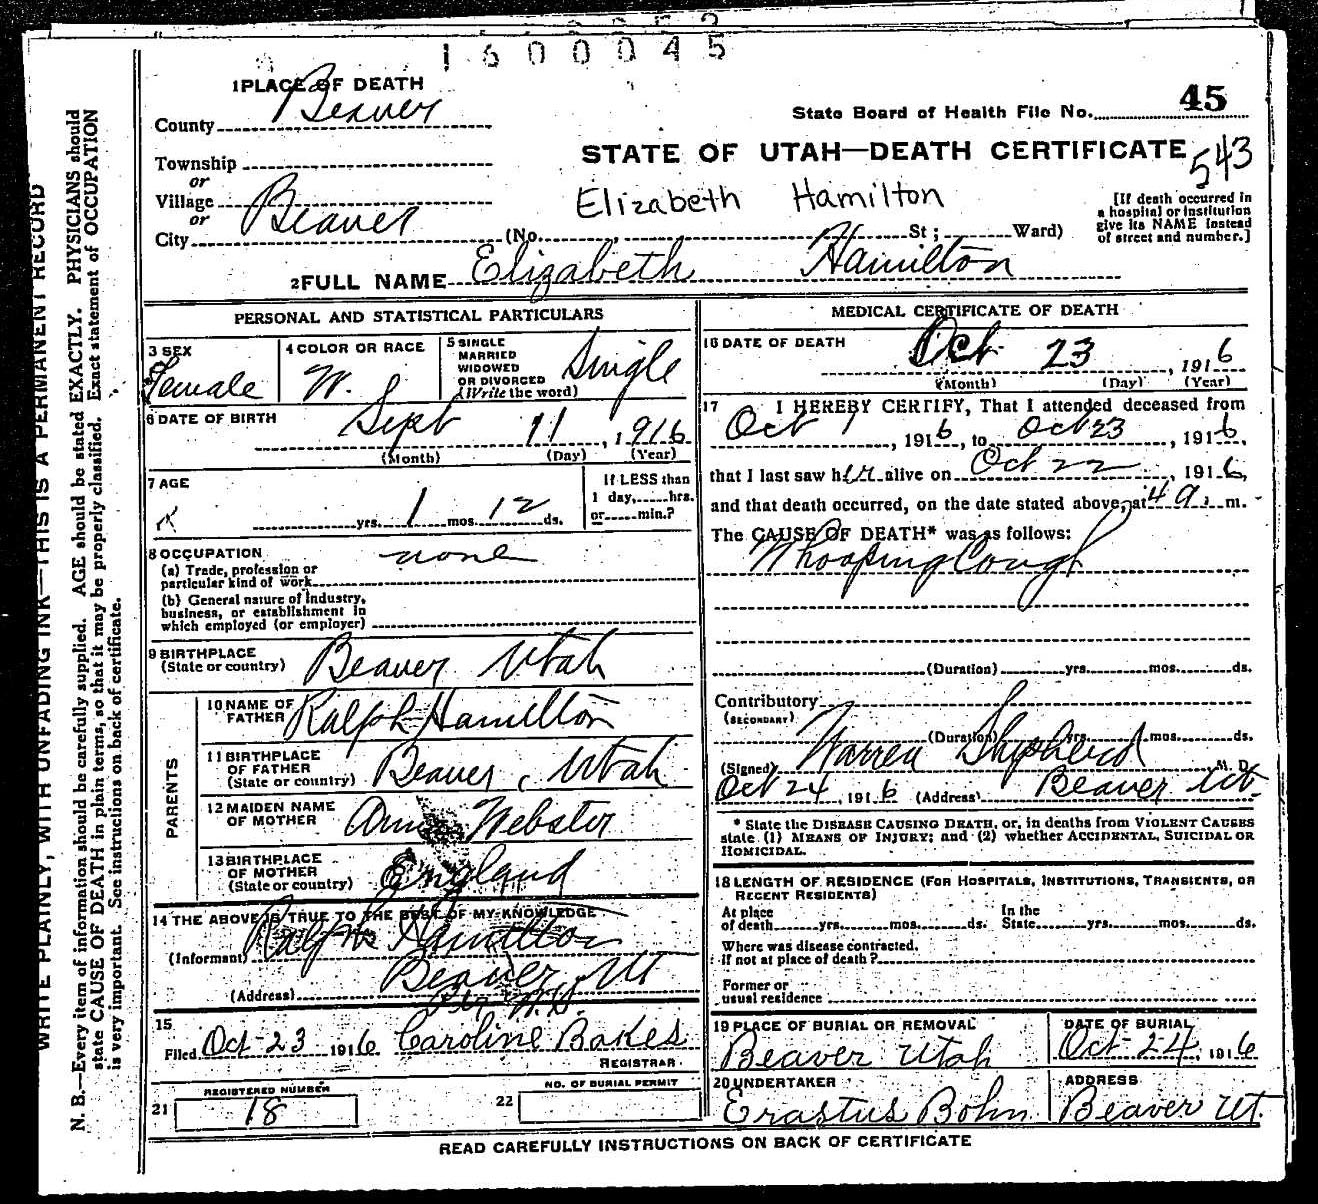 1600045
1 PLACE OF DEATH
County Beaver
State Board of Health File No. 45
Township
or
Village
or
City Beaver
STATE OF UTAH—DEATH CERTIFICATE
543
Elizabeth Hamilton
[If death occurred in
a hospital or institution
give its NAME instead
of street and number.]
(No. , St ; Ward)
2 FULL NAME Elizabeth Hamilton
PERSONAL AND STATISTICAL PARTICULARS
3 SEX
Female
4 COLOR OR RACE
W.
5 SINGLE
MARRIED
WIDOWED
OR DIVORCED
(Write the word)
Single
6 DATE OF BIRTH
Sept 11, 1916
(Month) (Day) (Year)
7 AGE
yrs. 1 mos. 12 ds.
If LESS than
1 day, hrs.
or min.?
8 OCCUPATION
(a) Trade, profession or
particular kind of work
none
(b) General nature of Industry,
business, or establishment in
which employed (or employer)
9 BIRTHPLACE
(State or country)
Beaver Utah
PARENTS
10 NAME OF
FATHER
Ralph Hamilton
11 BIRTHPLACE
OF FATHER
(State or country)
Beaver, Utah
12 MAIDEN NAME
OF MOTHER
Webster
13 BIRTHPLACE
OF MOTHER
(State or country)
England
14 THE ABOVE IS TRUE TO THE BEST OF MY KNOWLEDGE
(Informant) Ralph Hamilton
(Address) Beaver Ut
15
Filed Oct 23 1916 Caroline Bakes
REGISTRAR
REGISTERED NUMBER
21 18
NO. OF BURIAL PERMIT
22
MEDICAL CERTIFICATE OF DEATH
16 DATE OF DEATH
Oct. 23, 1916
(Month) (Day) (Year)
17 I HEREBY CERTIFY, That I attended deceased from
Oct 1, 1916, to Oct 23, 1916,
that I last saw her alive on Oct 22, 1916,
and that death occurred, on the date stated above, at 4 a. m.
The CAUSE OF DEATH* was as follows:
Whooping Cough
(Duration) yrs. mos. ds.
Contributory
(SECONDARY)
(Duration) yrs. mos. ds.
(Signed) Warren Shepherd M. D.
Oct 24, 1916 (Address) Beaver Ut.
* State the DISEASE CAUSING DEATH, or, in deaths from VIOLENT CAUSES
state (1) MEANS OF INJURY; and (2) whether ACCIDENTAL, SUICIDAL OR
HOMICIDAL.
18 LENGTH OF RESIDENCE (FOR HOSPITALS, INSTITUTIONS, TRANSIENTS, OR
RECENT RESIDENTS)
At place
of death yrs. mos. ds.
In the
State yrs. mos. ds.
Where was disease contracted.
if not at place of death?
Former or
usual residence
19 PLACE OF BURIAL OR REMOVAL
Beaver Utah
DATE OF BURIAL
Oct 24, 1916
20 UNDERTAKER
Erastus Bohn
ADDRESS
Beaver Ut.
READ CAREFULLY INSTRUCTIONS ON BACK OF CERTIFICATE
WRITE PLAINLY, WITH UNFADING INK—THIS IS A PERMANENT RECORD
N. B.—Every item of information should be carefully supplied. AGE should be stated EXACTLY. PHYSICIANS should
state CAUSE OF DEATH in plain terms, so that it may be properly classified. Exact statement of OCCUPATION
is very important. See instructions on back of certificate.